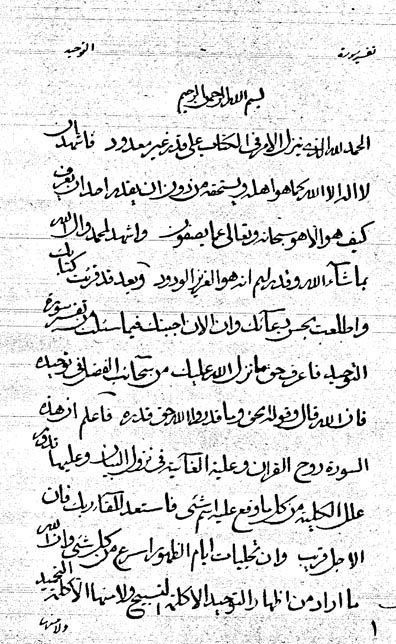 تفسير سورة التوحيد
بسم الله الرحمن الرحيم
الحمد لله الذي ينزل الامر في الكتاب على قدر غير معدود فاشهد ان
لا اله الا الله كما هو اهله ويستحقه من دون ان يقدر احد ان يعرف
كيف هو الا هو سبحانه وتعالى عما يصفون واشهد لمحمد وال الله
بما شاء الله وقدر لهم انه هو العزيز الودود وبعد قد قرئت كتابك
واطلعت بحسن دعائك وان الان اجبتك فيما سئلت من تفسير سورة
التوحيد فاعرف حق ما نزل الله عليك من سحائب الفضل في توحيده
فان الله قال وقوله الحق وما قدروا الله حق قدره فاعلم ان هذه
السورة روح القران وعلية الغائية في نزول البيان وعليها
علل الكلية من كل ما وقع عليه اسم شئ فاستعد للقاء ربك فان
الاجل قريب وان تجليات ايام الظهور اسرع من كل شئ وان الله
ما اراد من اظهار التوحيد الا كلمة التسبيح ولا منها الا كلمة التحميد
ولا منها
١